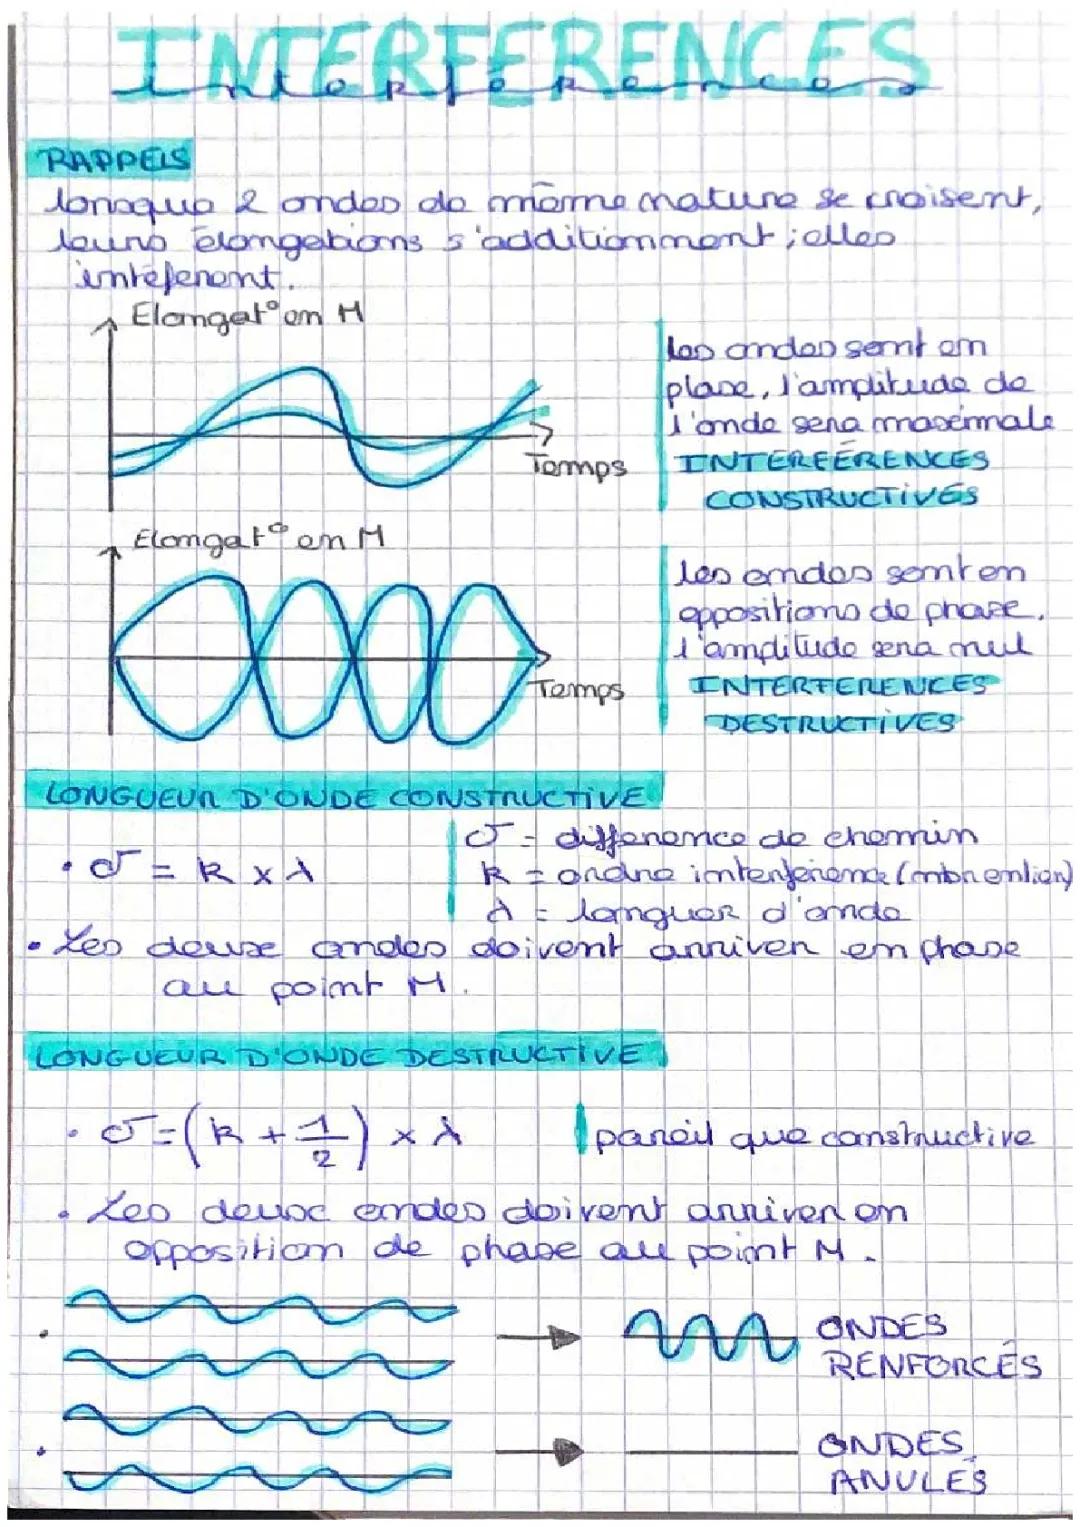 INTERFERENCES
Interférences
RAPPELS
lorsque 2 ondes de même nature se croisent,
leurs élongations s'additionnent ; elles
intéferent.
Elongat° en M
Temps
les ondes sont en
plase, l'amplitude de
l'onde sera maximale
INTERFÉRENCES
CONSTRUCTIVES
Elongat° en M
Temps
les ondes sont en
oppositions de phase.
l'amplitude sera nul
INTERFERENCES
DESTRUCTIVES
LONGUEUR D'ONDE CONSTRUCTIVE
• σ = k x λ
σ = difference de chemin
k = ordre interference (nbr entier)
λ = longuer d'onde
• Les deux ondes doivent arriver en phase
au point M.
LONGUEUR D'ONDE DESTRUCTIVE
• σ = (k + 1/2) x λ
pareil que constructive
• Les deux ondes doivent arriver en
opposition de phase au point M.
ONDES
RENFORCÉS
ONDES
ANULÉS